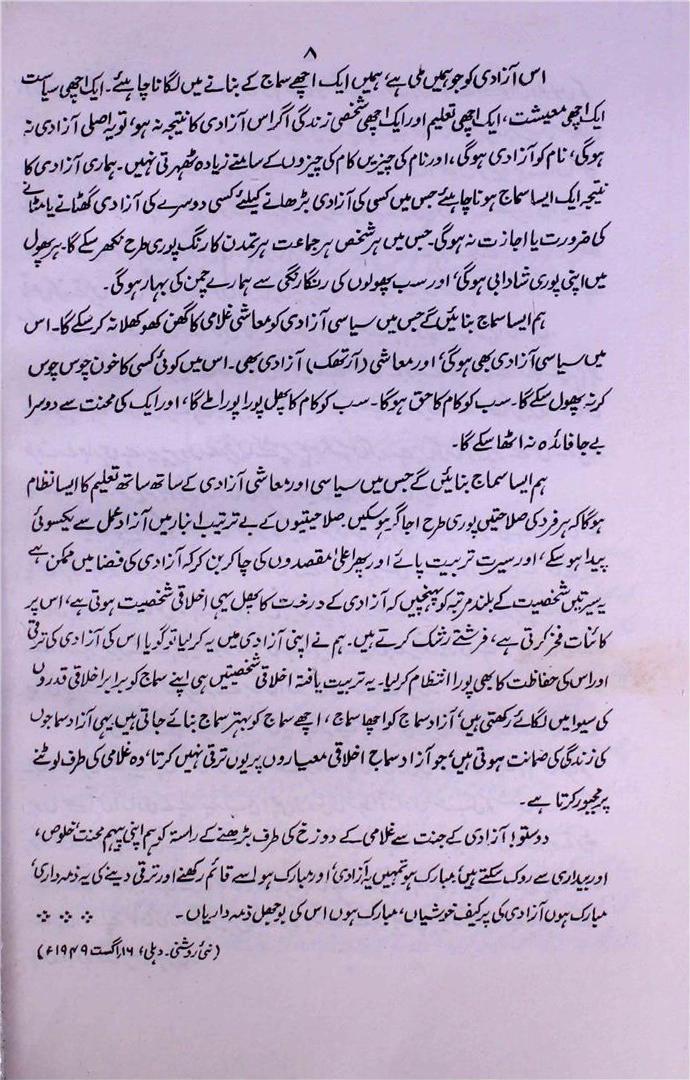 ۸
اس آزادی کو جو ہمیں ملی ہے، ہمیں ایک اچھے سماج کے بنانے میں لگانا چاہیئے۔ ایک اچھی سیاست
ایک اچھی معیشت، ایک اچھی تعلیم اور ایک اچھی شخصی زندگی اگر اس آزادی کا نتیجہ نہ ہو، تو یہ اصلی آزادی نہ
ہوگی، نام کو آزادی ہوگی، اور نام کی چیزیں کام کی چیزوں کے سامنے زیادہ ٹھہرتی نہیں۔ ہماری آزادی کا
نتیجہ ایک ایسا سماج ہونا چاہیئے جس میں کسی کی آزادی بڑھانے کیلئے کسی دوسرے کی آزادی گھٹانے یا مٹانے
کی ضرورت یا اجازت نہ ہوگی۔ جس میں ہر شخص ہر جماعت ہر تمدن کا رنگ پوری طرح نکھر سکے گا۔ ہر پھول
میں اپنی پوری شادابی ہوگی، اور سب پھولوں کی رنگارنگی سے ہمارے چمن کی بہار ہوگی۔
ہم ایسا سماج بنائیں گے جس میں سیاسی آزادی کو معاشی غلامی کا گھن کھوکھلا نہ کر سکے گا۔ اس
میں سیاسی آزادی بھی ہوگی، اور معاشی (آرتھک) آزادی بھی۔ اس میں کوئی کسی کا خون چوس چوس
کر نہ پھول سکے گا۔ سب کو کام کا حق ہوگا۔ سب کو کام کا پھل پورا پورا ملے گا، اور ایک کی محنت سے دوسرا
بے جا فائدہ نہ اٹھا سکے گا۔
ہم ایسا سماج بنائیں گے جس میں سیاسی اور معاشی آزادی کے ساتھ ساتھ تعلیم کا ایسا نظام
ہوگا کہ ہر فرد کی صلاحتیں پوری طرح اجاگر ہو سکیں۔ صلاحیتوں کے بے ترتیب انبار میں آزاد عمل سے یکسوئی
پیدا ہو سکے، اور سیرت تربیت پائے اور پھر اعلیٰ مقصدوں کی چاکر بن کر کہ آزادی کی فضا میں ممکن ہے
یہ سیرتیں شخصیت کے بلند مرتبہ کو پہنچیں کہ آزادی کے درخت کا پھل یہی اخلاقی شخصیت ہوتی ہے، اس پر
کائنات فخر کرتی ہے، فرشتے رشک کرتے ہیں۔ ہم نے اپنی آزادی میں یہ کر لیا تو گویا اس کی آزادی کی ترقی
اور اس کی حفاظت کا بھی پورا انتظام کر لیا۔ یہ تربیت یافتہ اخلاقی شخصیتیں ہی اپنے سماج کو برابر اخلاقی قدروں
کی سیوا میں لگائے رکھتی ہیں، آزاد سماج کو اچھا سماج، اچھے سماج کو بہتر سماج بنائے جاتی ہیں۔ یہی آزاد سماجوں
کی زندگی کی ضمانت ہوتی ہیں، جو آزاد سماج اخلاقی معیاروں پر یوں ترقی نہیں کرتا، وہ غلامی کی طرف لوٹنے
پر مجبور کرتا ہے۔
دوستو! آزادی کے جنت سے غلامی کے دوزخ کی طرف بڑھنے کے راستہ کو ہم اپنی پیہم محنت، خلوص،
اور بیداری سے روک سکتے ہیں، مبارک ہو تمہیں یہ آزادی، اور مبارک ہو اسے قائم رکھنے اور ترقی دینے کی یہ ذمہ داری،
مبارک ہوں آزادی کی پرکیف خوشیاں، مبارک ہوں اس کی بوجھل ذمہ داریاں۔
(نئی روشنی۔ دہلی، ۱۶؍اگست ۱۹۴۹ء)